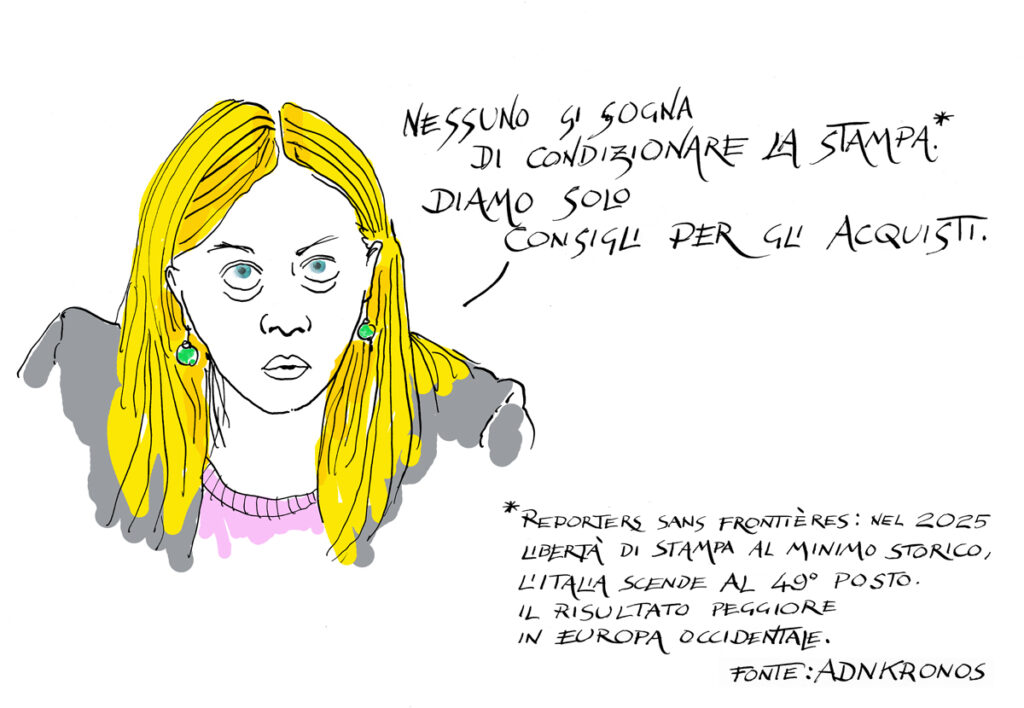 NESSUNO SI SOGNA
DI CONDIZIONARE LA STAMPA.*
DIAMO SOLO
CONSIGLI PER GLI ACQUISTI.
*REPORTERS SANS FRONTIÈRES: NEL 2025
LIBERTÀ DI STAMPA AL MINIMO STORICO,
L'ITALIA SCENDE AL 49° POSTO.
IL RISULTATO PEGGIORE
IN EUROPA OCCIDENTALE.
FONTE: ADNKRONOS